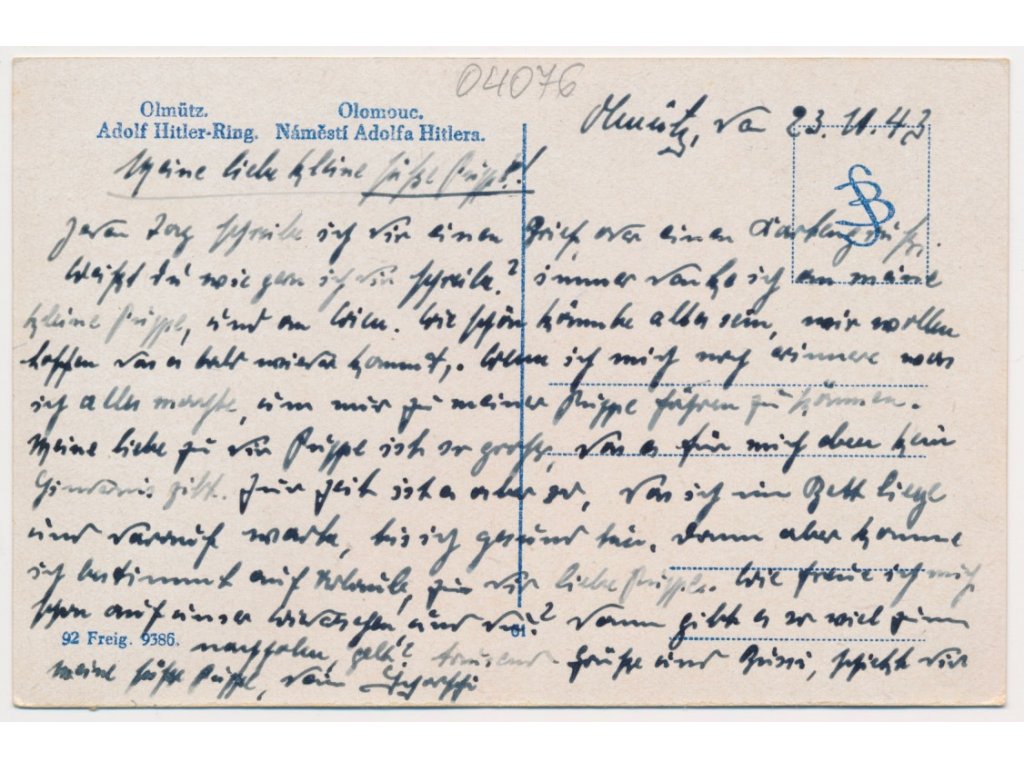 04076
Olmütz. Olomouc.
Adolf Hitler-Ring. Náměstí Adolfa Hitlera.
Olmütz, den 23.11.43
Meine liebe kleine süße Puppe!
Jeden Tag schreibe ich dir einen Brief oder einen Kartengruß.
Weißt du wie gern ich dir schreibe? immer denke ich an meine
kleine Puppe, und an Wien. Wie schön könnte alles sein, wir wollen
hoffen das es bald wieder kommt. Wenn ich mich noch erinnere was
ich alles machte, um nur zu meiner Puppe fahren zu können.
Meine liebe zu dir Puppe ist so groß, das es für mich eben kein
Hindernis gibt. Zur Zeit ist es aber so, das ich im Bett liege
und darauf warte, bis ich gesund bin. Dann aber komme
ich bestimmt auf Urlaub, zu dir liebe Puppe. Wie freue ich mich
schon auf unser wiedersehen und du? Dann gibt es so viel zum
nachholen, gelt? tausend Grüße und Bussi, schickt dir
meine süße Puppe, dein
92 Freig. 9386. 61